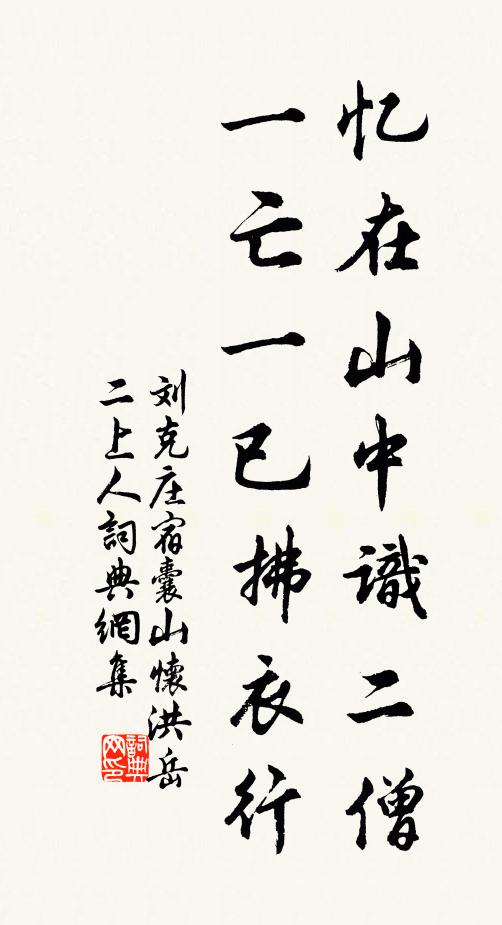 忆在山中識二僧
一亡一已拂衣行
刘克庄宿囊山懷洪岳
二上人詞典網集
詞典网印